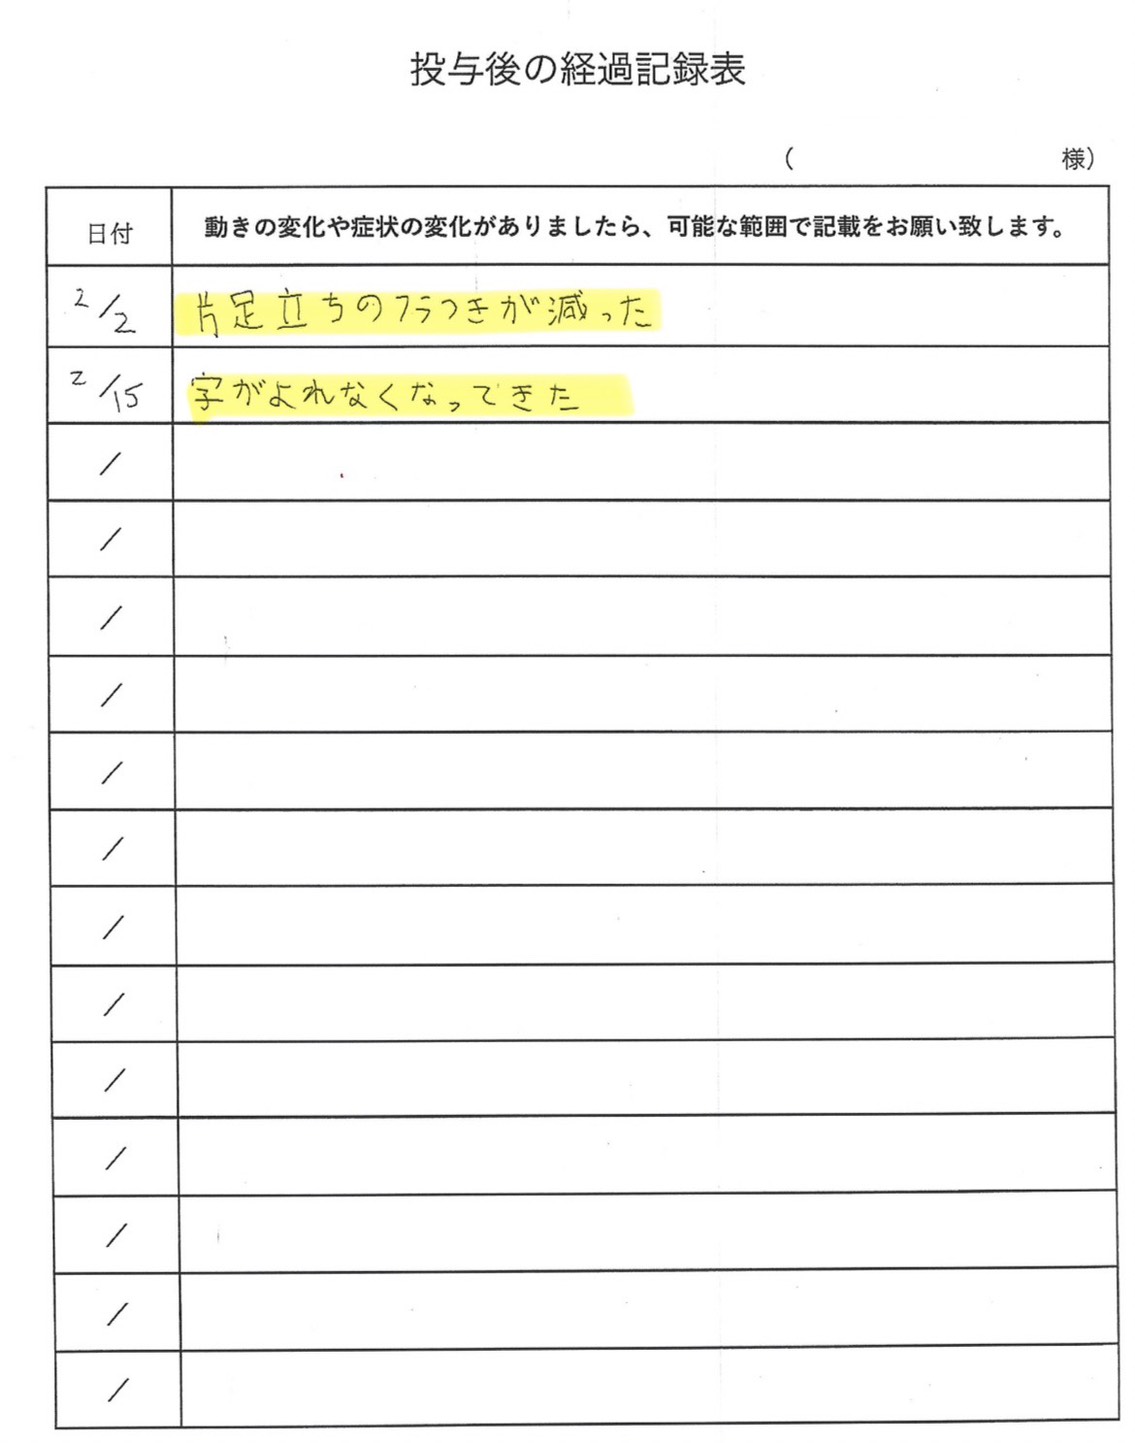 投与後の経過記録表
（　　　　　　　　様）
日付 動きの変化や症状の変化がありましたら、可能な範囲で記載をお願い致します。
2/2 片足立ちのフラつきが減った
2/15 字がよれなくなってきた
/
/
/
/
/
/
/
/
/
/
/
/
/